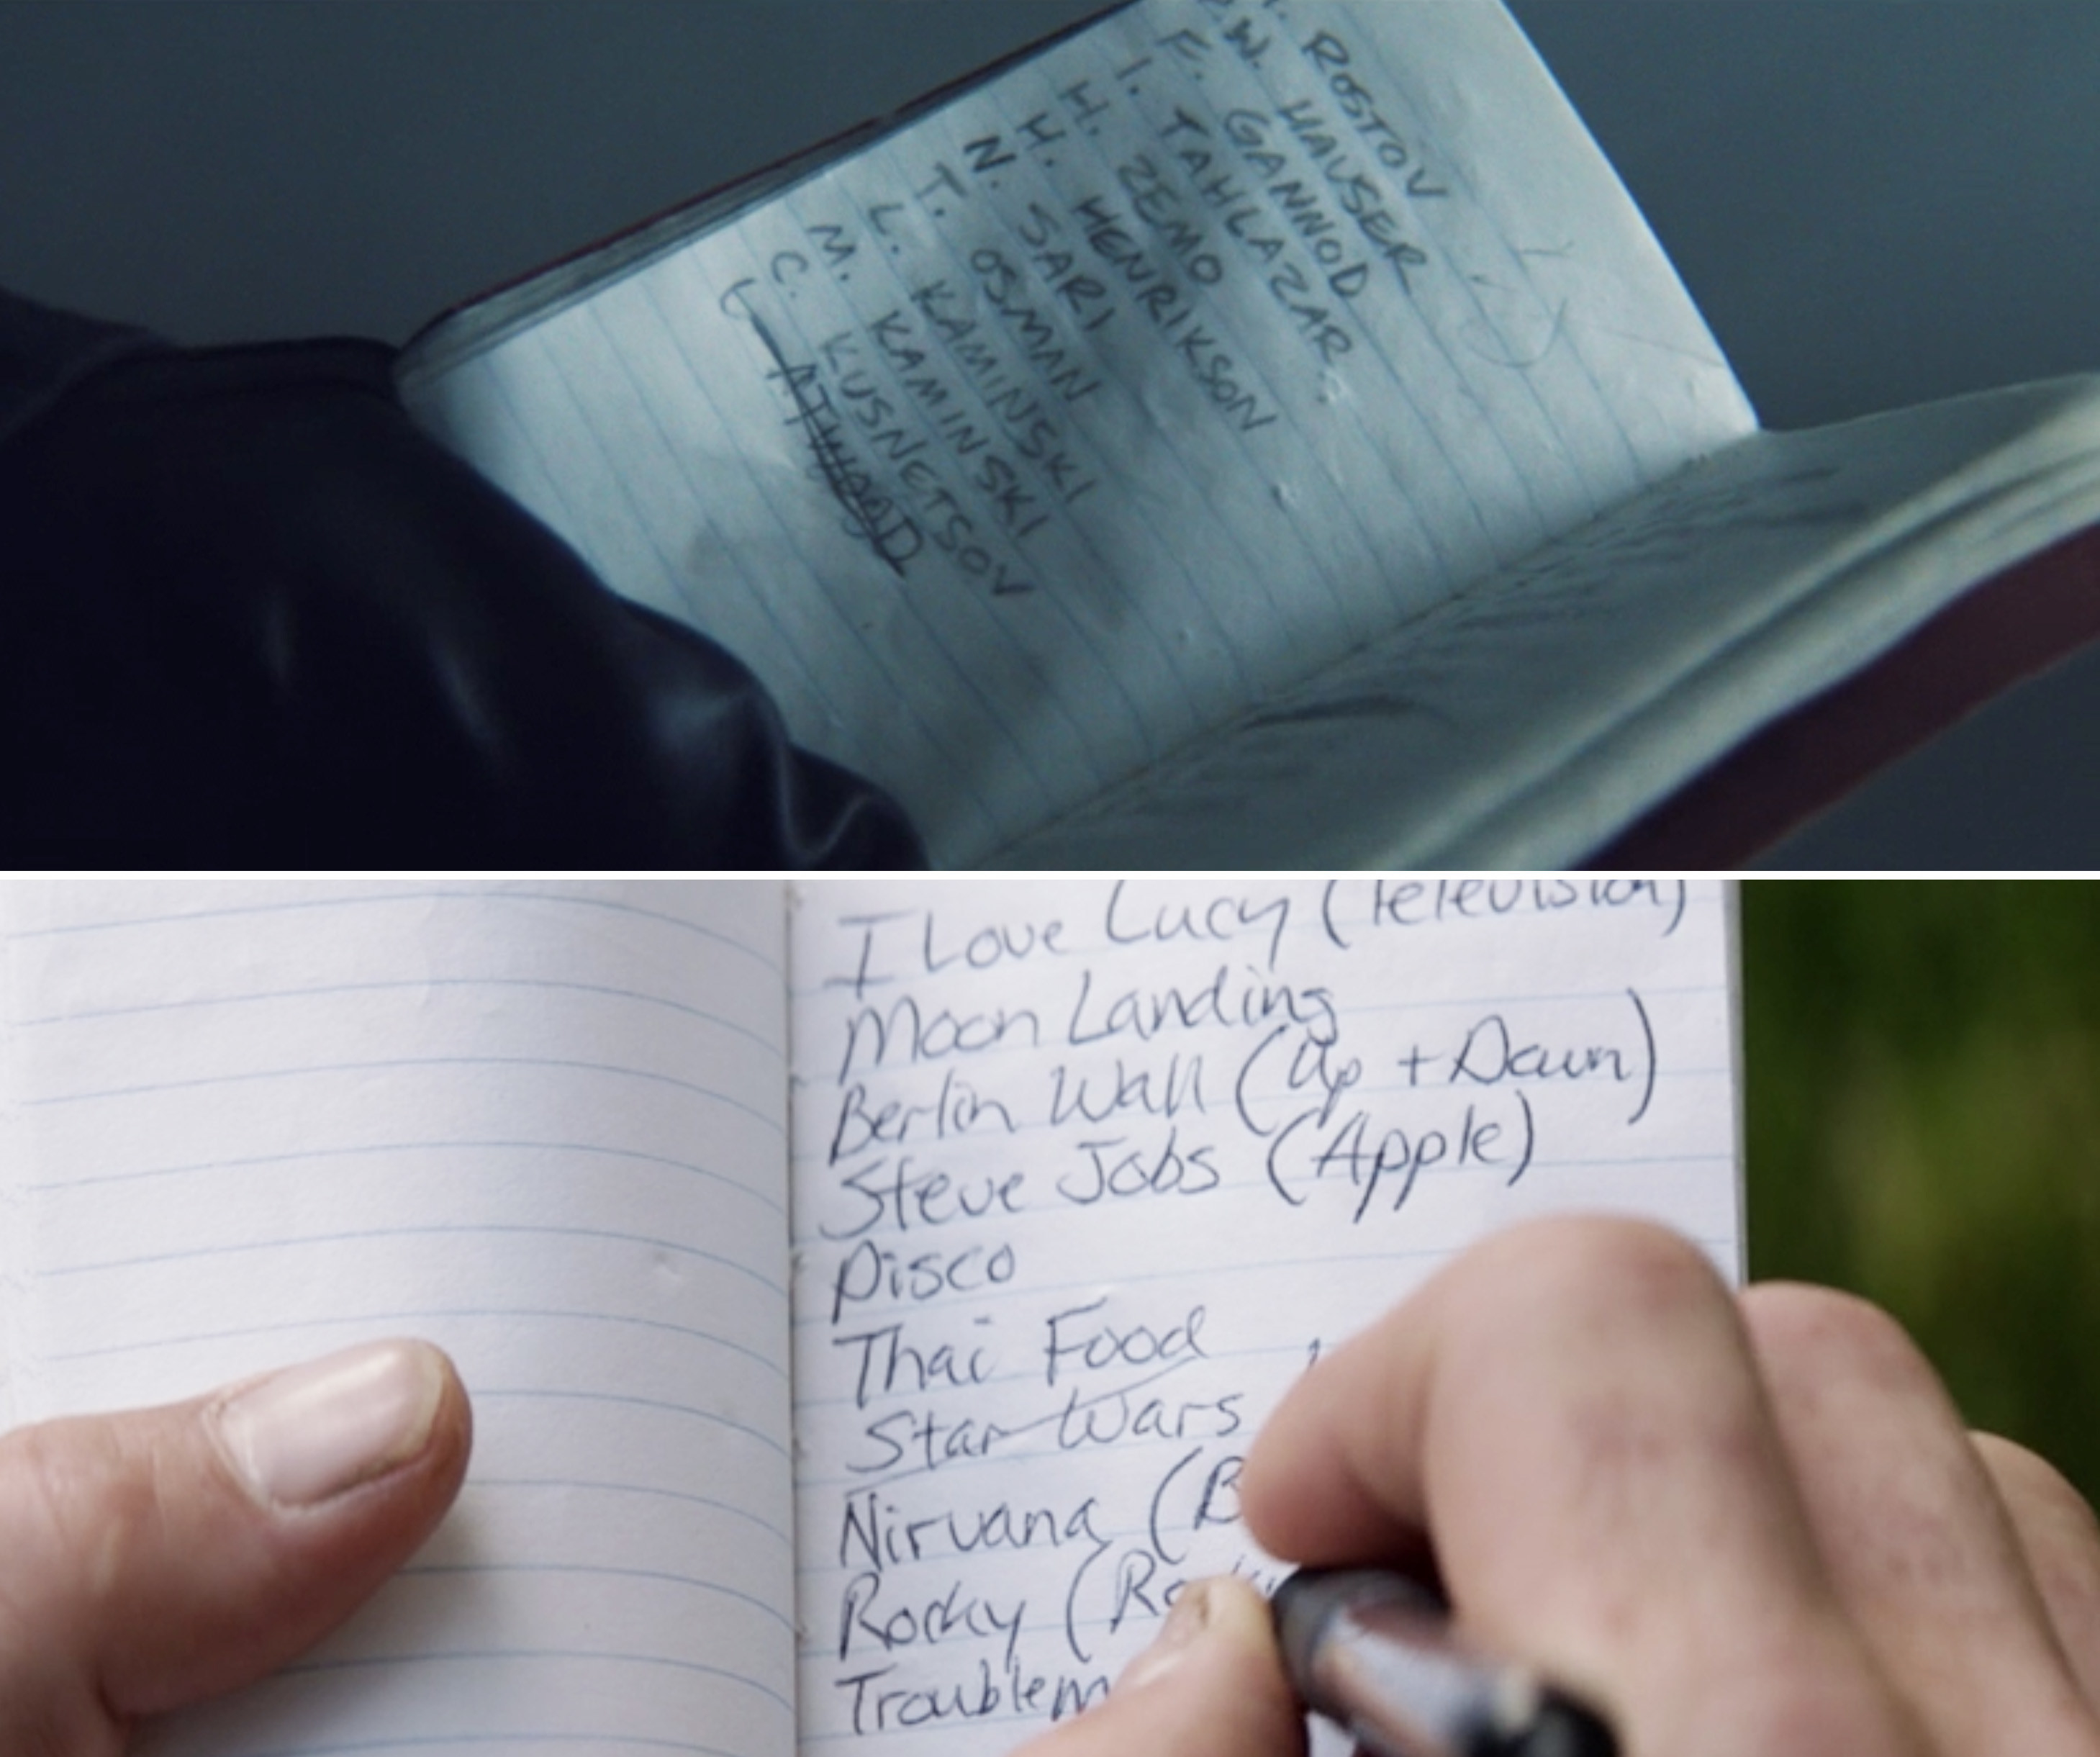 ROSTOV
W. HAUSER
F. GANNOD
I. TAHLAZAR
H. ZEMO
H. HENRIKSON
N. SARI
T. OSMAN
L. KAMINSKI
M. KAMINSKI
C. KUSNETSOV
L ATWOOD
I Love Lucy (Television)
Moon Landing
Berlin Wall (Up + Down)
Steve Jobs (Apple)
Disco
Thai Food
Star Wars
Nirvana (B
Rocky (Rocky
Troublem